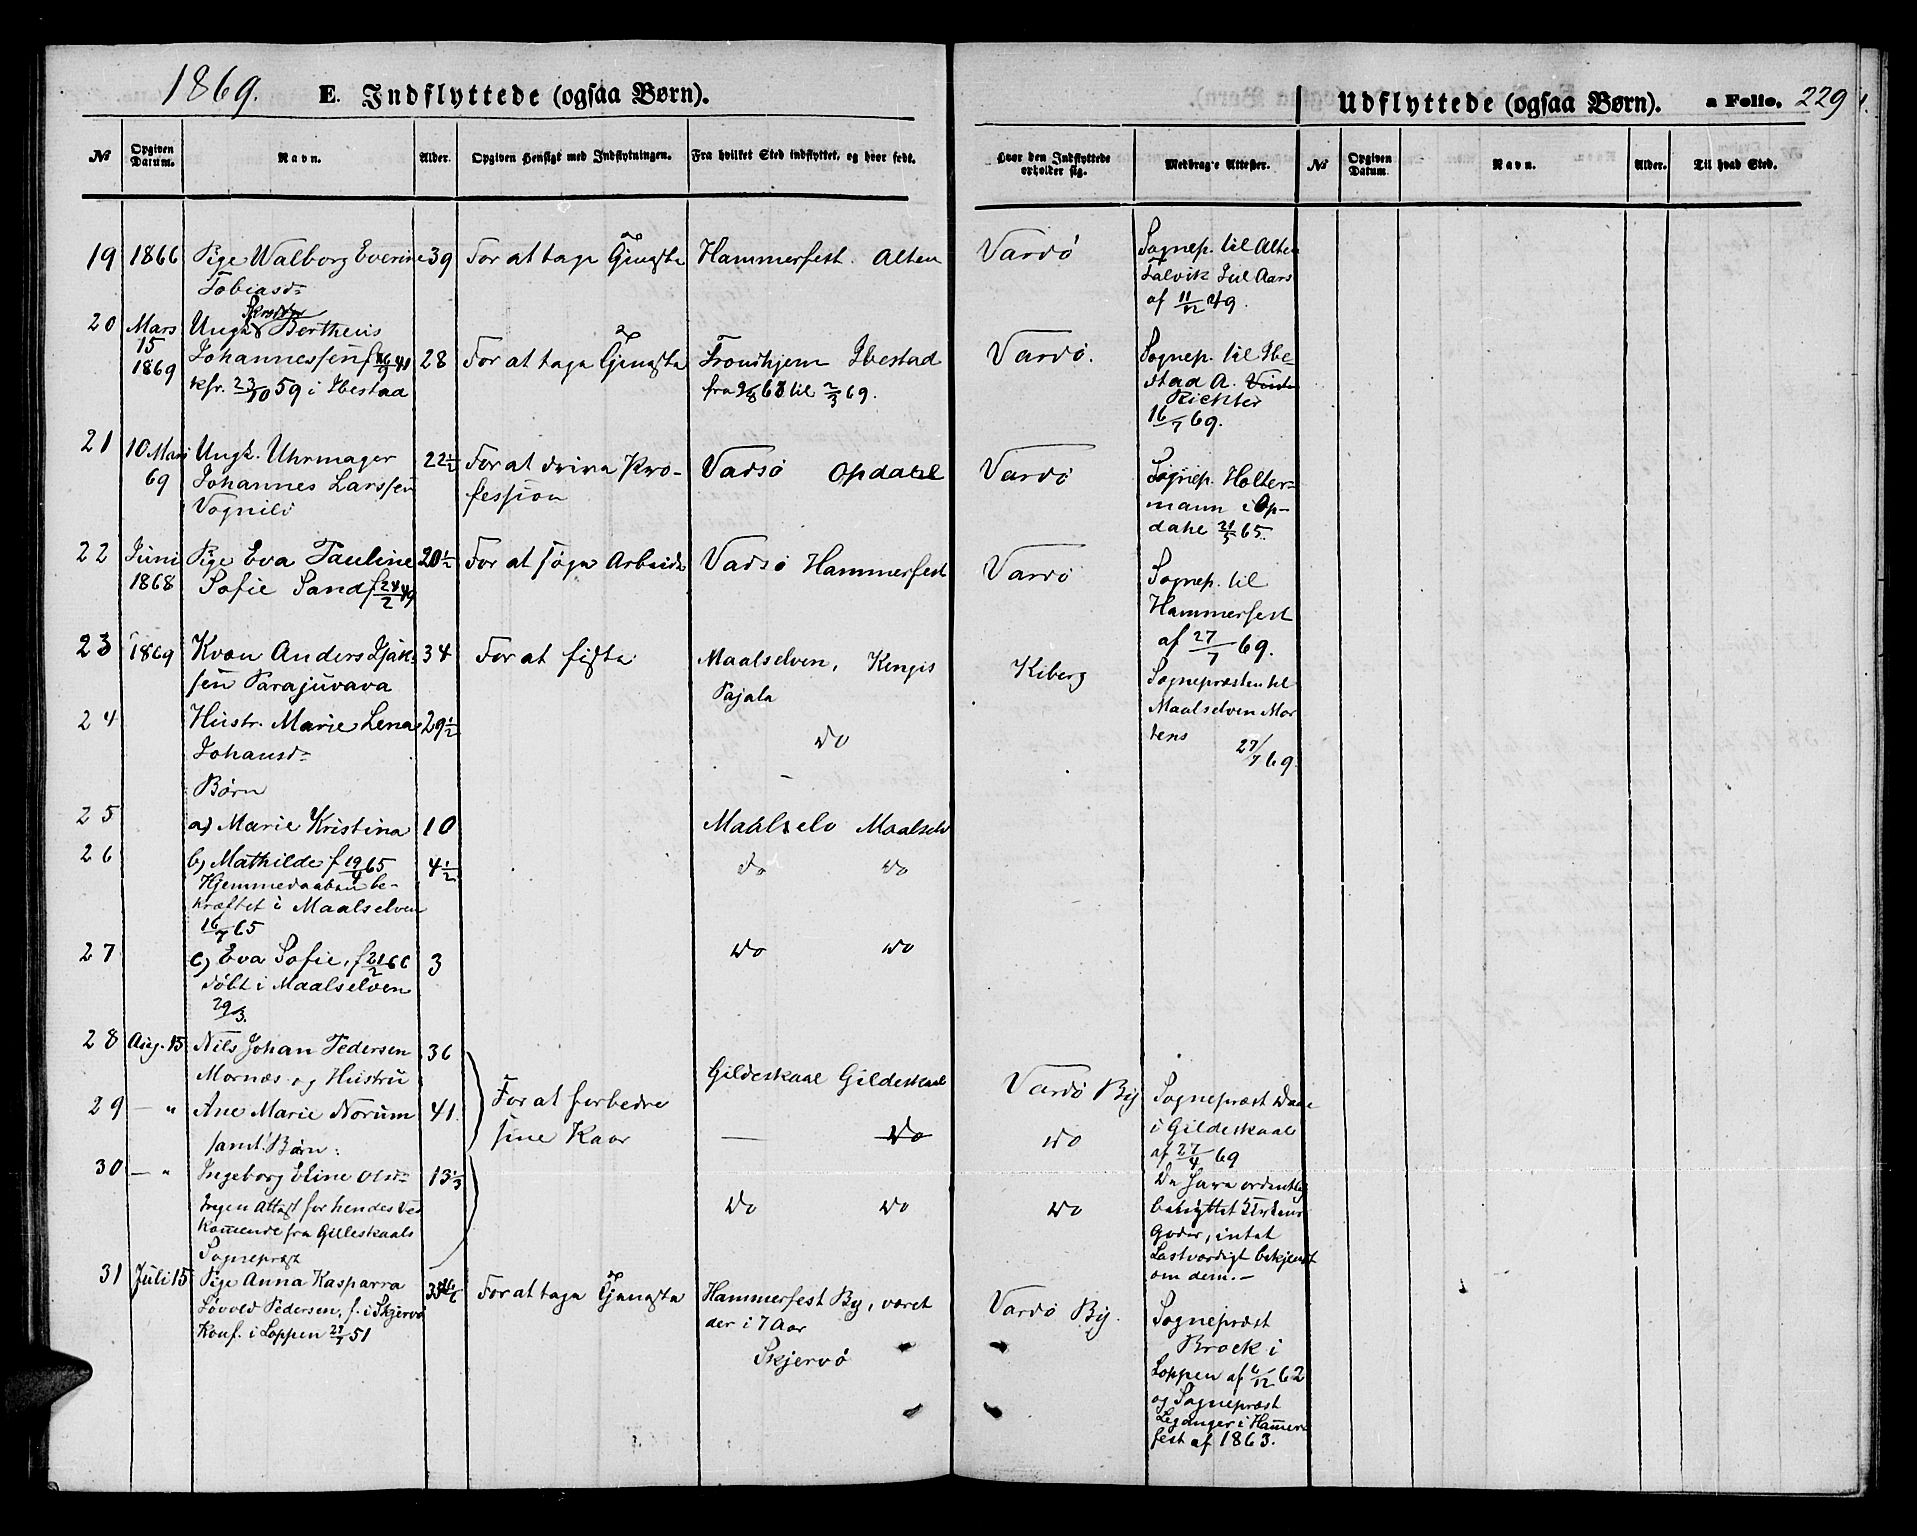 1869.
E. Indflyttede (ogsaa Børn).
Udflyttede (ogsaa Børn).
a Folio. 229
No
Opgiven Datum.
Navn.
Alder.
Opgiven Hensigt med Indflytningen.
Fra hvilket Sted indflyttet, og hvor født.
Hvor den Indflyttede opholder sig.
Medbragte Attester.
No
Opgiven Datum
Navn.
Alder.
Til hvad Sted.
19 1866 Pige Walborg Everine 39 For at tage Tjeneste Hammerfest. Alten Vardö Sognep. til Alten
Tobiasd= Talvik Jul Aars
af 11/12 49.
20 Mars Ungk. Skrædder Bertheus
15 Johannessen f 16/9 41 28 For at tage Tjeneste Trondhjem Ibestad Vardö. Sognep. til Ibe
1869 kfr. 23/10 59 i Ibestad fra 9/8 68 til 2/3 69. stad A.
Richter
16/7 69.
21 10 Mars Ungk. Uhrmager 22½ For at drive Pro- Vadsö Opdahl Vardö Sognep. Holter=
69 Johannes Larssen fession mann i Op-
Vognild dahl 21/5 65.
22 Juni Pige Eva Pauline 20½ For at söge Arbeide Vadsö Hammerfest Vardö Sognep. til
1868 Sofie Sand f 24/2 49 Hammerfest
af 27/7 69.
23 1869 Kvæn Anders Isak= 34 For at fiske Maalselven, Kengis Kiberg Sognepræsten til
sen Parajuvava Pajala Maalselven Mor
24 Hustr. Marie Lena 29½ Do tens 27/7 69.
Johansd=
Børn
25 a) Marie Kristina 10 Maalselv Maalselv
26 b) Mathilde f 19/4 65 4½ do do
Hjemmedaaben be-
kræftet i Maalselven
16/7 65
27 c) Eva Sofie, f 21/2 66 3 do do
döbt i Maalselven
29/3.
28 Aug. 15 Nils Johan Pedersen 36
Mornæs og Hustru Gildeskaal Gildeskaal Vardö By Sognepræst Daae
29 — " Ane Marie Norum 41. For at forbedre i Gildeskaal
samt Børn: sine Kaar — Do do af 27/4 69
30 — " Ingeborg Eline Olsd= 13⅓ De have ordentlig
Ingen Attest for hendes Ved do do do benyttet Kirkens
kommende fra Gilleskaals Goder, intet
Sognepræst Lastværdigt bekjendt
om dem.—
31 Juli 15 Pige Anna Kasparra For at tage Tjeneste Hammerfest By, været Vardö By. Sognepræst
Lövold Pedersen, f. i Skjervö der i 7 Aar Brock i
Konf. i Loppen 51 Skjervö Loppen af 6/12 62
og Sognepræst
Leganger i Hammer
fest af 1863.